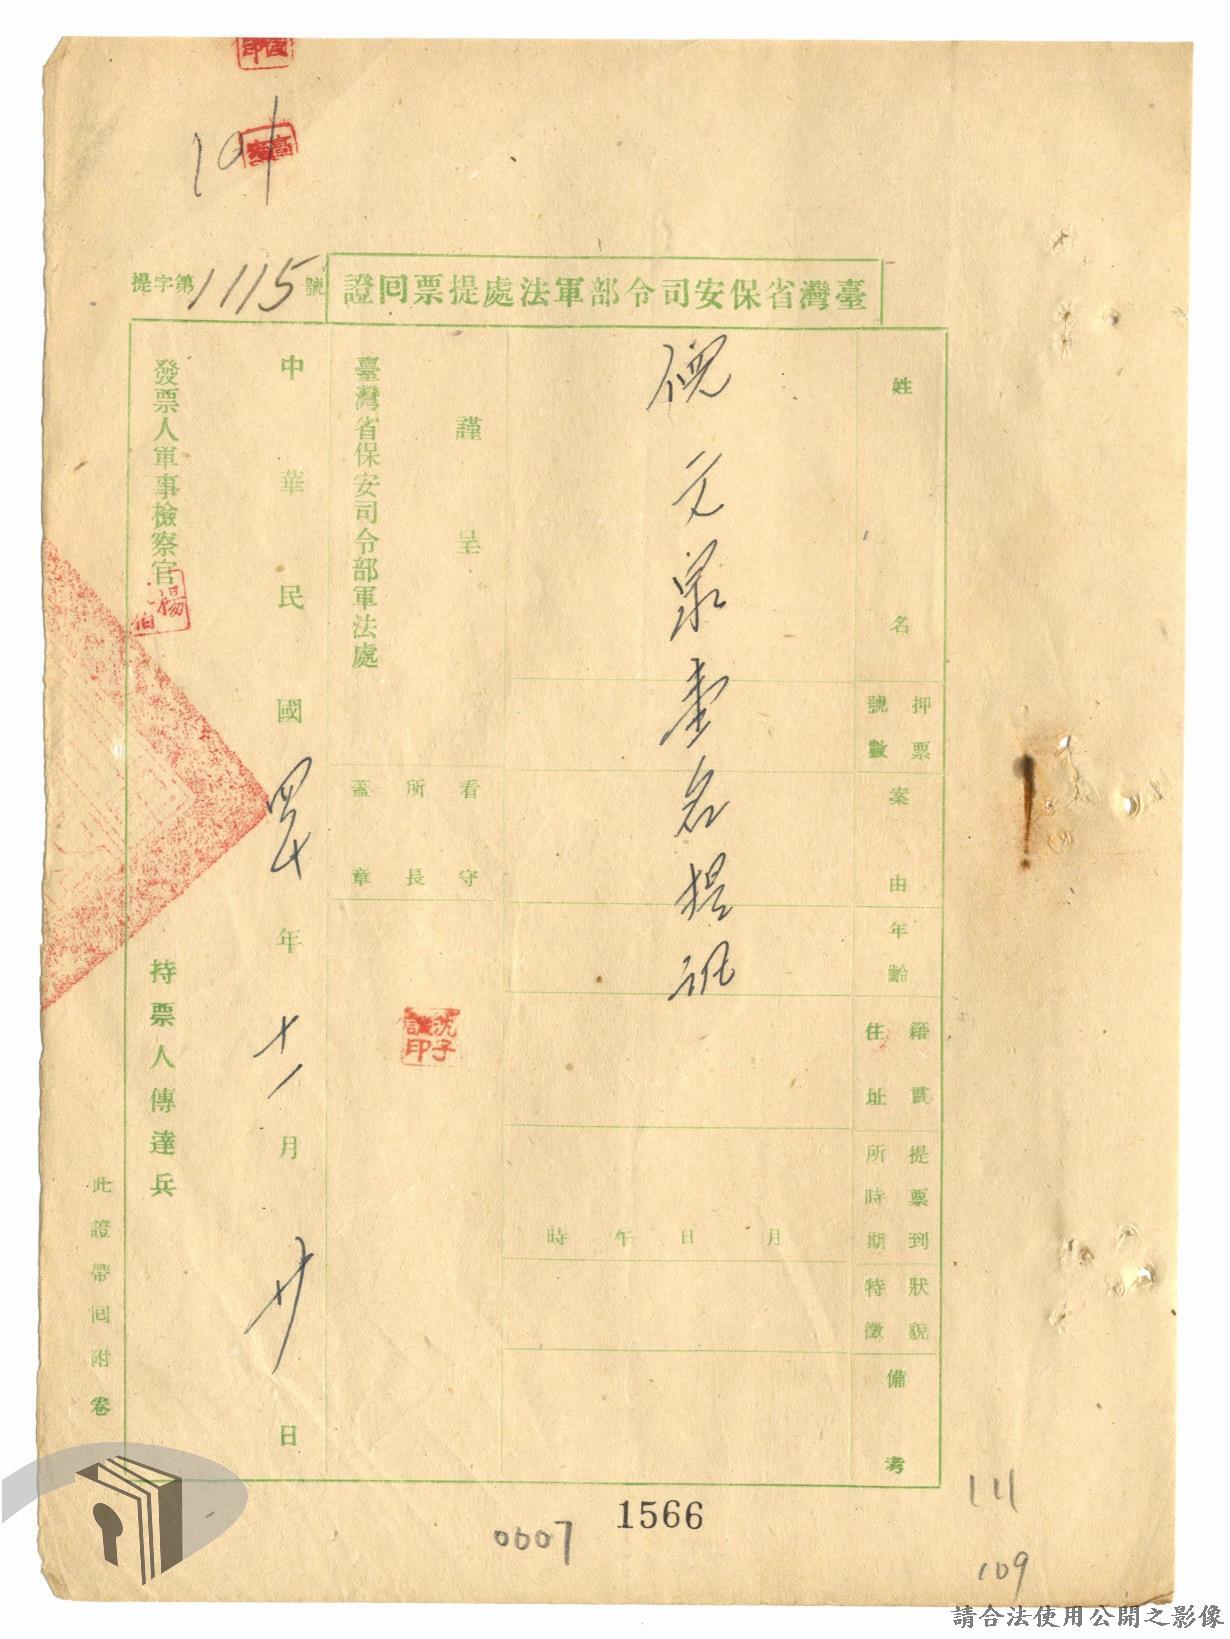 101
臺灣省保安司令部軍法處提票回證
提字第1115號
姓名
押票號數
案由
年齡
籍貫住址
提票到所時期
狀貌特徵
備考
倪元泉壹名提訊
月 日 午 時
謹呈
臺灣省保安司令部軍法處
看守所長蓋章
沈子
印
中華民國四十年十一月廿日
發票人軍事檢察官
楊
持票人傳達兵
此證帶回附卷
1566
0007
111
109
請合法使用公開之影像